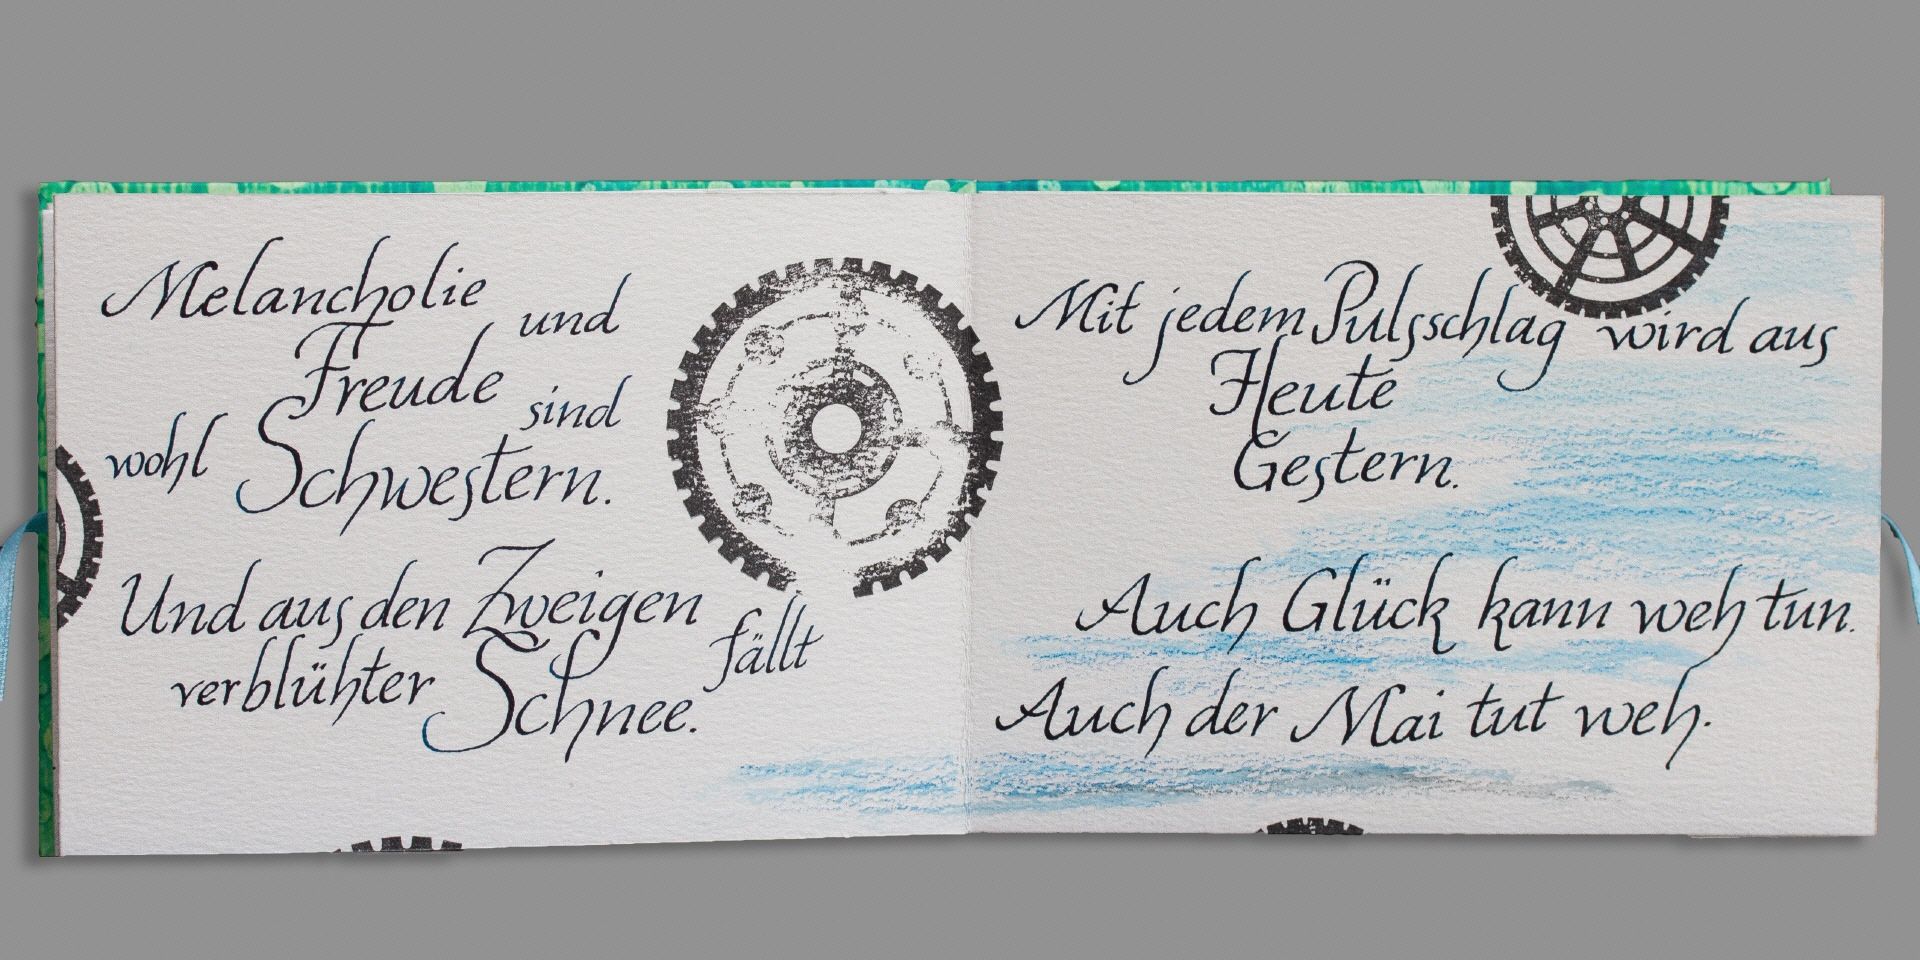 Melancholie und
Freude sind
wohl Schwestern.
Und aus den Zweigen fällt
verblühter Schnee.
Mit jedem Pulsschlag wird aus
Heute
Gestern.
Auch Glück kann weh tun.
Auch der Mai tut weh.